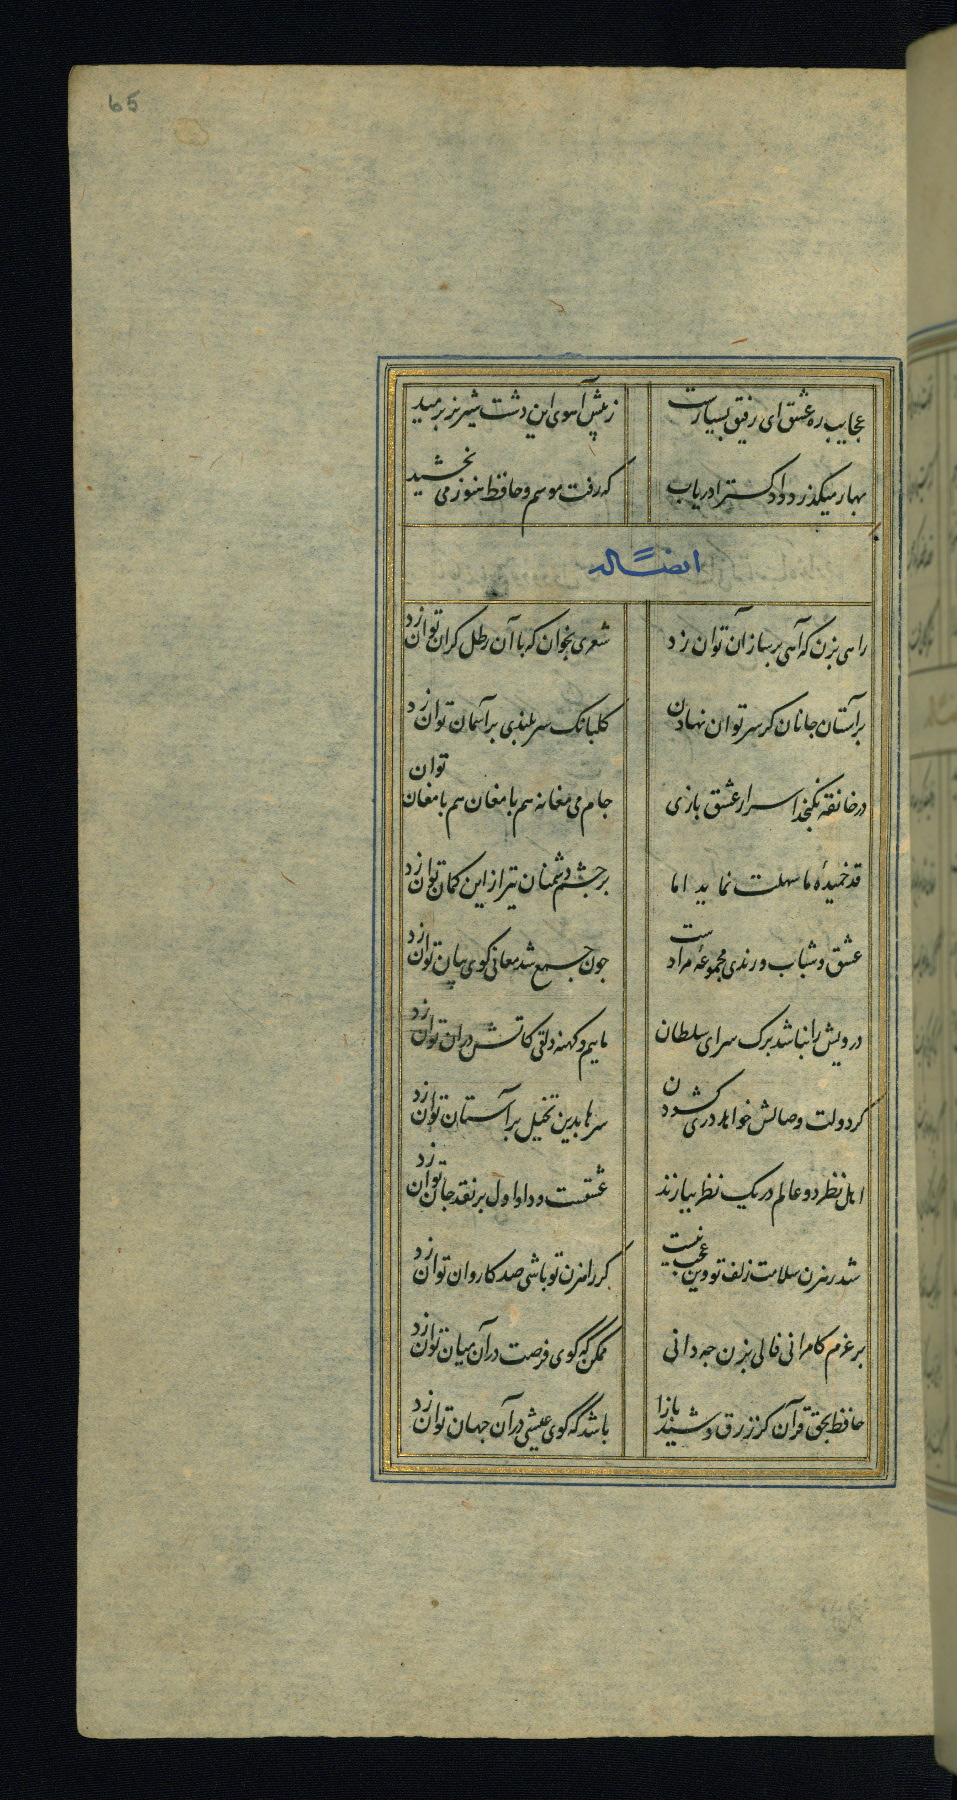 65
عجایب ره عشق ای رفیق بسیارست زپیش آهوی این دشت شیر نر برمید
بهار میگذرد دادکسترا دریاب که رفت موسم و حافظ هنوز می نخشید
ایضاً له
راهی بزن که آهی بر ساز آن توان زد شعری بخوان که با آن رطل کران توان زد
بر آستان جانان کر سر توان نهادن کلبانک سربلندی بر آسمان توان زد
در خانقه نکنجد اسرار عشق بازی جام می مغانه هم با مغان هم با مغان توان
قد خمیدهٔ ما سهلت نماید اما بر چشم دشمنان تیر از این کمان توان زد
عشق و شباب و رندی مجموعهٔ مرادست جون جمع شد معانی کوی بیان توان زد
درویش را نباشد برک سرای سلطان ماییم و کهنه دلقی کاتش در ان توان زد
کر دولت وصالش خواهد دری کشودن سرها بدین تخیل بر آستان توان زد
اهل نظر دو عالم در یک نظر ببازند عشقست و داو اول بر نقد جان توان زد
شد رهزن سلامت زلف تو وین عجب نیست کر راهزن تو باشی صد کاروان توان زد
بر عزم کامرانی فالی بزن جه دانی ممکن که کوی فرصت در آن میان توان زد
حافظ بحق قرآن کز زرق و شید بازا باشد که کوی عیشی در آن جهان توان زد